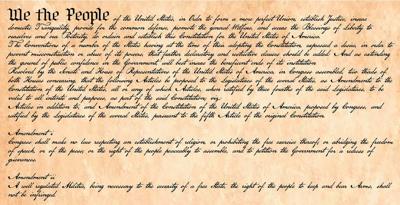 We the People of the United States, in Order to form a more perfect Union, establish Justice, insure
domestic Tranquility, provide for the common defence, promote the general Welfare, and secure the Blessings of Liberty to
ourselves and our Posterity, do ordain and establish this Constitution for the United States of America.
The Conventions of a number of the States having at the time of their adopting the Constitution, expressed a desire, in order to
prevent misconstruction or abuse of its powers, that further declaratory and restrictive clauses should be added: And as extending
the ground of public confidence in the Government will best insure the beneficent ends of its institution.
Resolved by the Senate and House of Representatives of the United States of America, in Congress assembled, two thirds of
both Houses concurring, that the following Articles be proposed to the Legislatures of the several States, as Amendments to the
Constitution of the United States, all or any of which Articles, when ratified by three fourths of the said Legislatures, to be
valid to all intents and purposes, as part of the said Constitution; viz.
Articles in addition to, and Amendment of the Constitution of the United States of America, proposed by Congress, and
ratified by the Legislatures of the several States, pursuant to the fifth Article of the original Constitution.
Amendment i
Congress shall make no law respecting an establishment of religion, or prohibiting the free exercise thereof; or abridging the freedom
of speech, or of the press; or the right of the people peaceably to assemble, and to petition the Government for a redress of
grievances.
Amendment ii
A well regulated Militia, being necessary to the security of a free State, the right of the people to keep and bear Arms, shall
not be infringed.